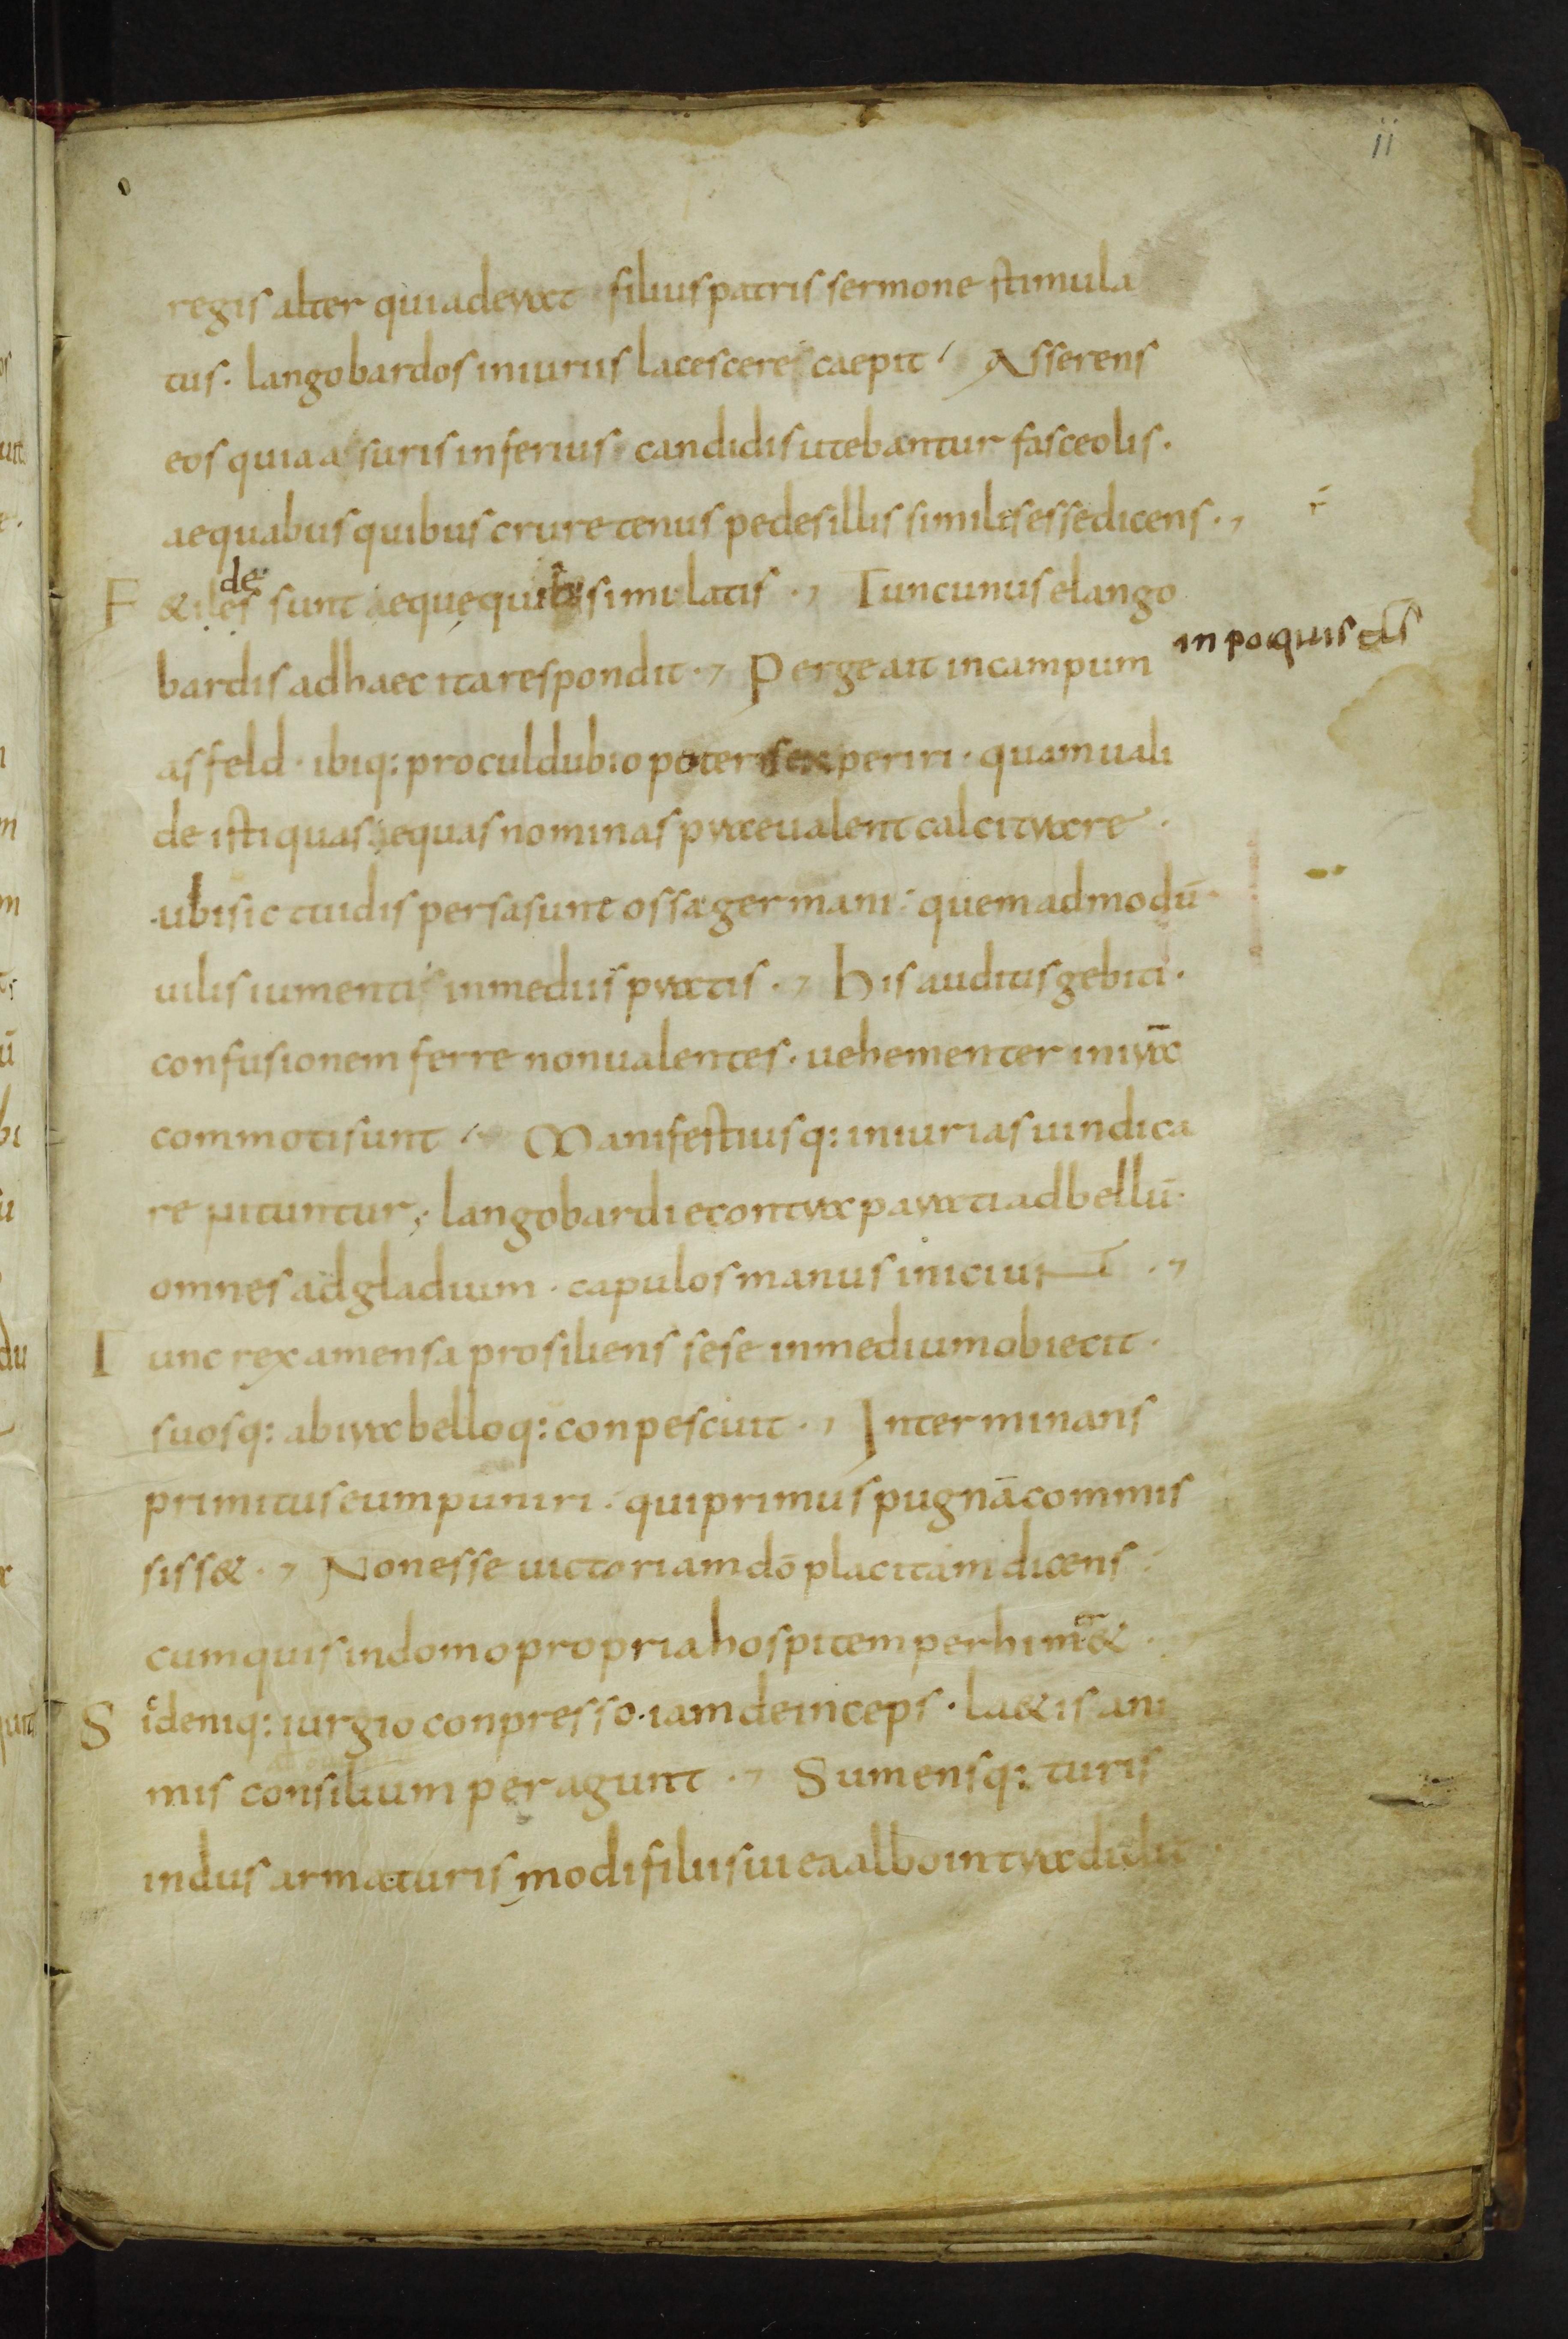 ii
regis alter qui aderat filius patris sermone stimula
tus. langobardos iniuriis lacescere caepit Asserens
eos quia a suris inferius candidis utebantur fasceolis.
aequabus quibus crure tenus pedes illis similes esse dicens.
F &iles sunt aeque quibus simulatis. Tunc unus e lango
de
bardis ad haec ita respondit. Perge ait in campum
in poquis
asfeld. ibiq: procul dubio poteris experiri. quam uali
de isti quas aequas nominas praeualent calcitrare.
ubi sic tui dispersa sunt ossa germani quemadmodū
uilis iumenti in mediis pratis. His auditis gebiti.
confusionem ferre non ualentes. uehementer in irā
commoti sunt Manifestiusq: iniurias uindica
re nituntur; langobardi econtra parati ad bellū.
omnes ad gladium. capulos manus iniciunt.
T unc rex a mensa prosiliens sese in medium obiecit.
suosq: ab ira belloq: conpescuit. Interminans
primitus eum puniri. qui primus pugnā commis
siss&. Non esse uictoriam dō placitam dicens.
cum quis in domo propria hospitem perhim&.
S ic deniq: iurgio conpresso. iam deinceps. la&is ani
mis consilium peragunt. Sumensq: turis
indus arma turismodi filii sui ea alboin tradidit